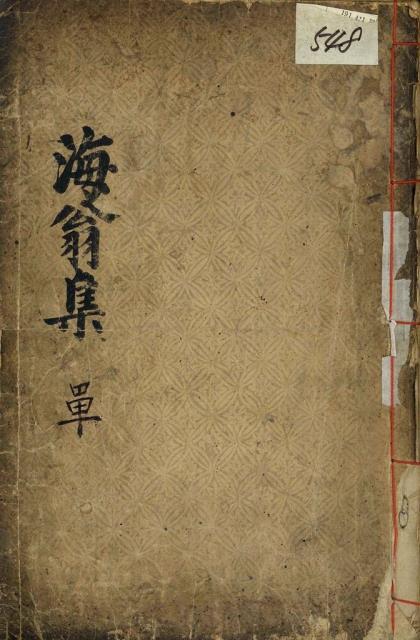 海翁集
單
548